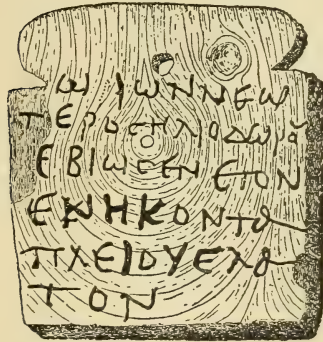 ωΙωΝΝΕω
ΤΕΡΟCΗΛΟΔωΡου
ΕΒΙωCΕΝ ΕΤΟΝ
ΕΝΗΚΟΝΤΑ
ΠΛΕΙΟΥΕΛΑ
ΤΟΝ